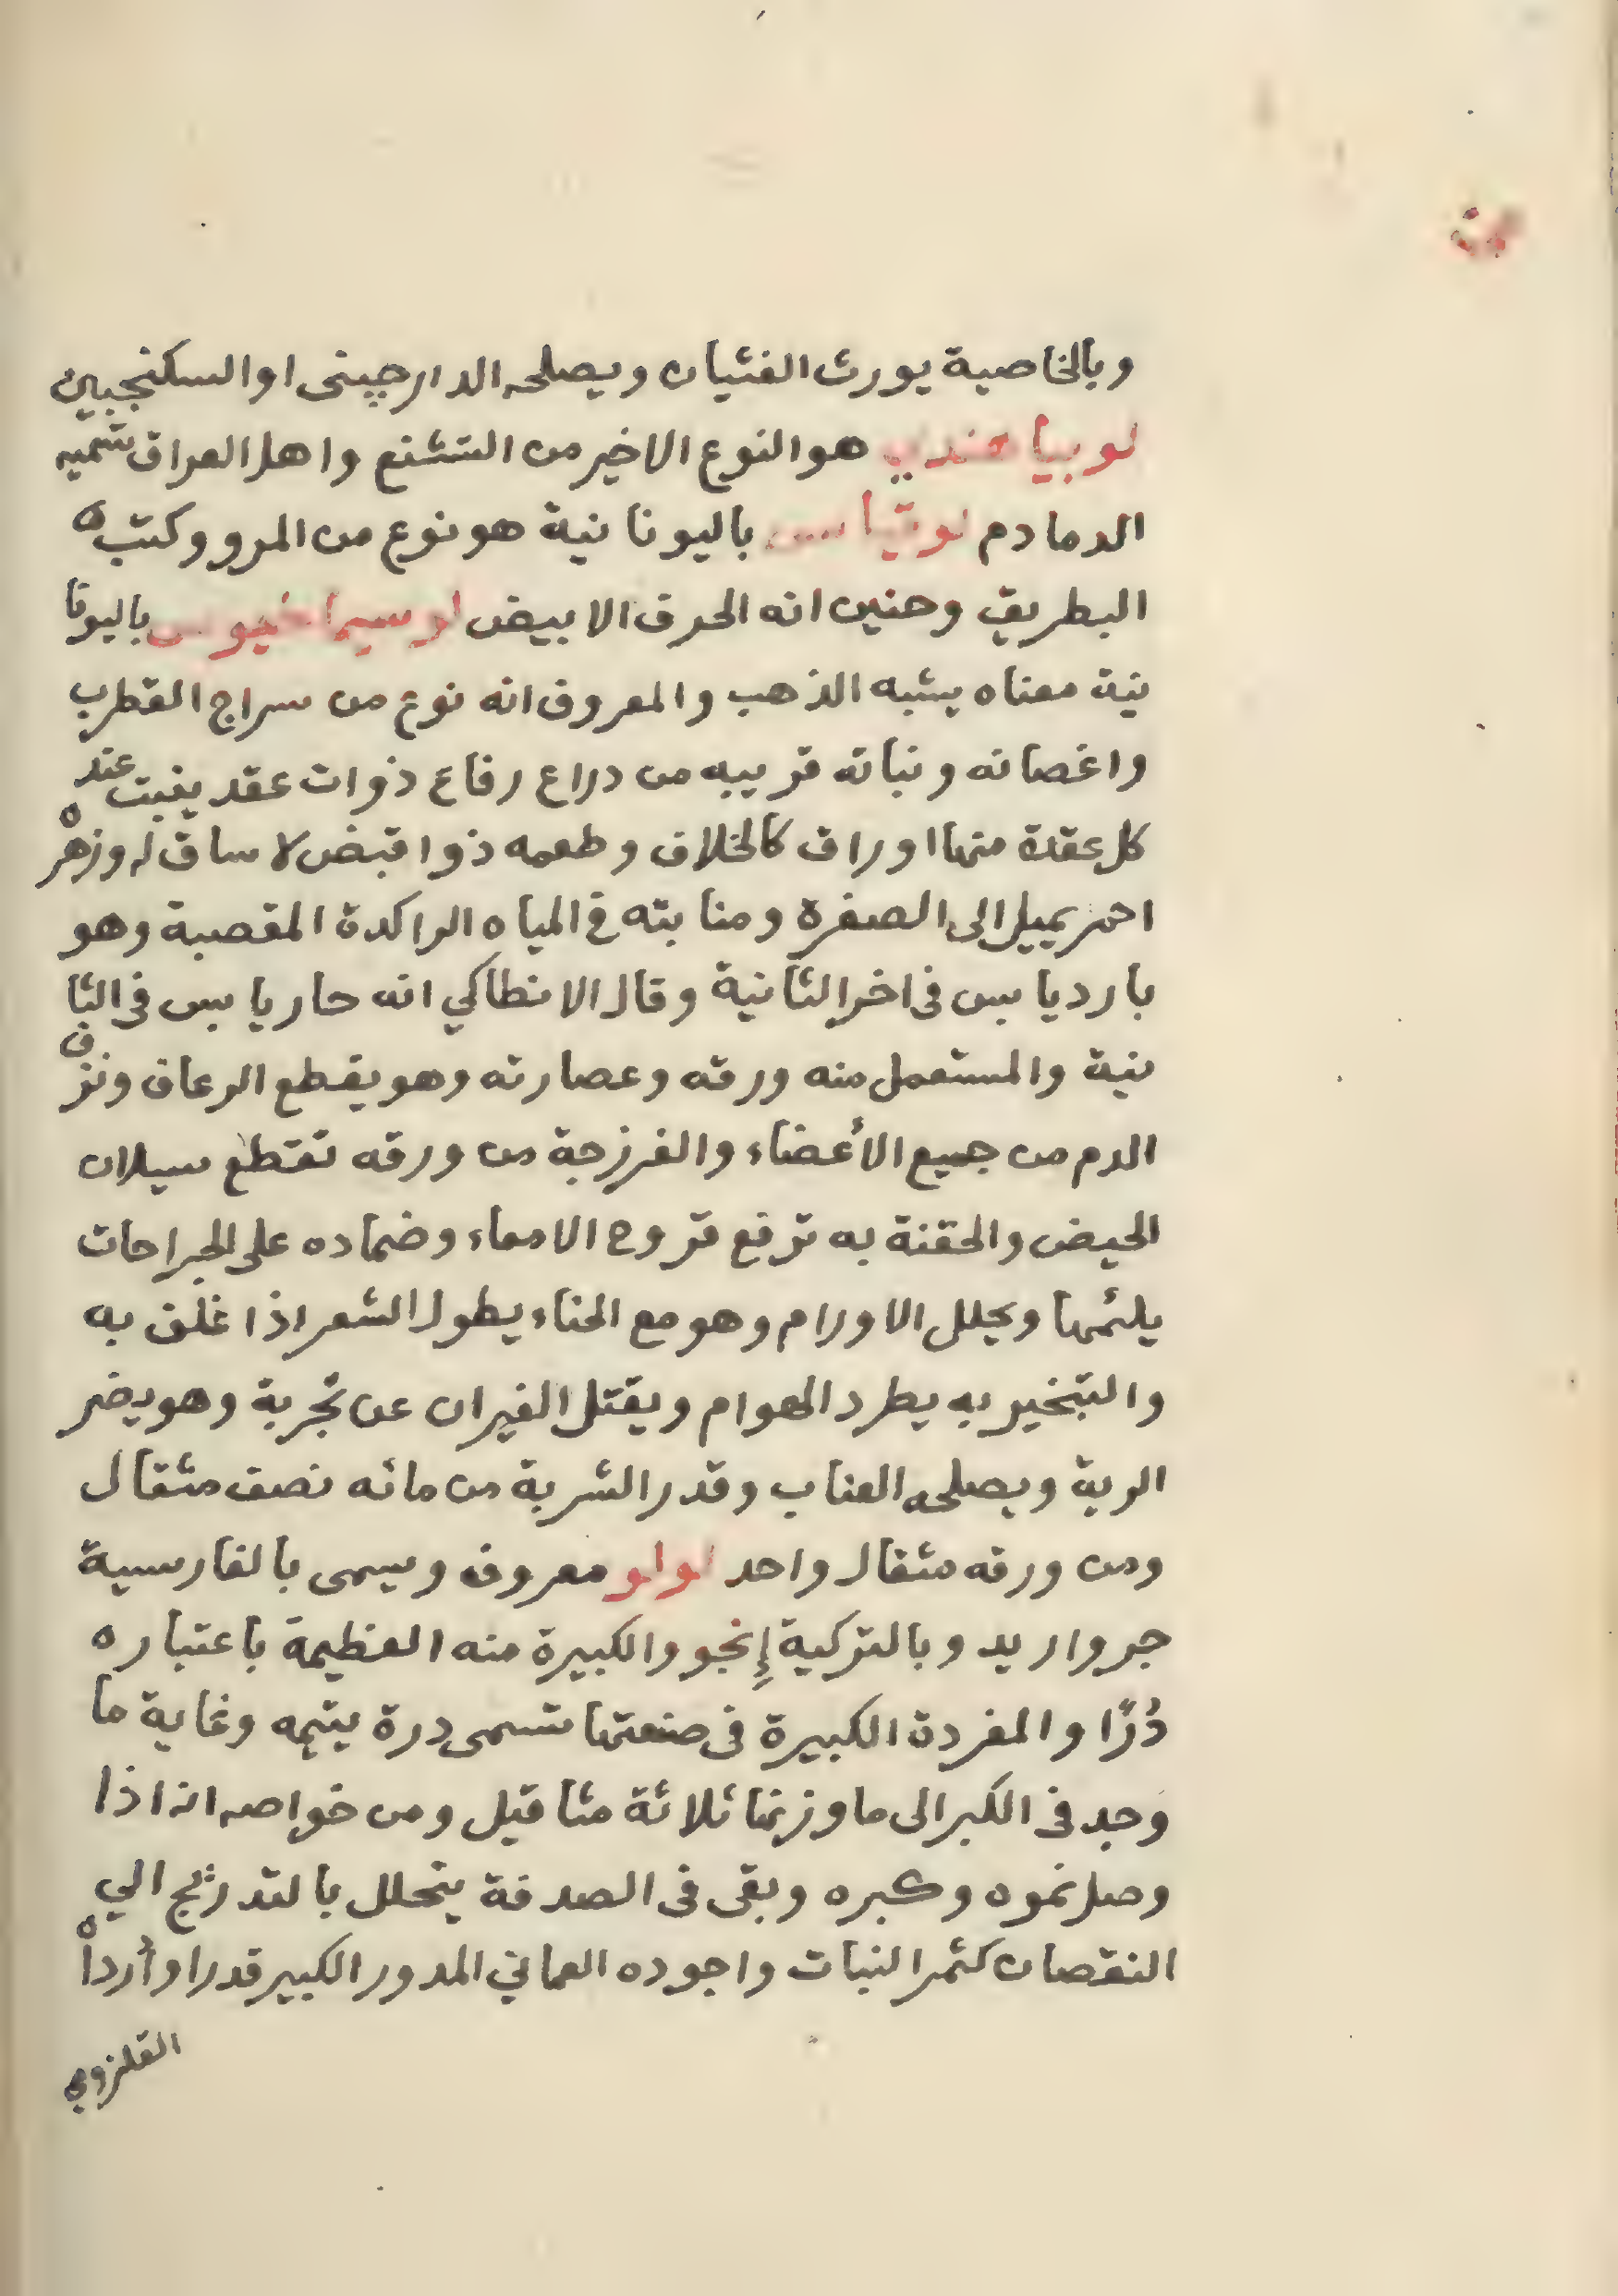 وبالخاصية يورث الغثيان ويصلحه الدارچيني او السكنجبين
لوبيا هندي هو النوع الاخير من التشنع واهل العراق تسميه
الدمادم لوقياس باليونانية هو نوع من المرو وكتب
البطريق وحنين انه الحرف الابيض لوسيماخيوس باليونا
نية معناه يشبه الذهب والمعروف انه نوع من سراج القطرب
واغصانه ونباته قريبه من دراع رفاع ذوات عقد ينبت عند
كل عقدة منها اوراق كالخلاف وطعمه ذوا قبض لا ساق له وزهره
احمر يميل الى الصفرة ومنابته في المياه الراكدة المقصبة وهو
بارد يابس في اخر الثانية وقال الانطاكي انه حار يابس في الثا
نية والمستعمل منه ورقه وعصارته وهو يقطع الرعاف ونزف
الدم من جميع الأعضاء والفرزجة من ورقه تقطع سيلان
الحيض والحقنة به ترفع قروح الامعاء وضماده على الجراحات
يلئمها ويحلل الاورام وهو مع الحناء يطول الشعر اذا غلف به
والتبخير به يطرد الهوام ويقتل الفيران عن تجربة وهو يضر
الرية ويصلحه العناب وقدر الشربة من مائه نصف مثقال
ومن ورقه مثقال واحد لولو معروف ويسمى بالفارسية
جرواريد وبالتركية إنجو والكبيرة منه العظيمة باعتباره
دُرًا والمفردة الكبيرة في صنعتها تسمى درة يتيمه وغاية ما
وجد في الكبر الى ما وزنها ثلاثة مثاقيل ومن خواصه انه اذا
وصل نموه وكبره وبقى في الصدفة يتحلل بالتدريج الي
النقصان كثمر النبات واجوده العماني المدور الكبير قدرا وأرداه
القلزومي